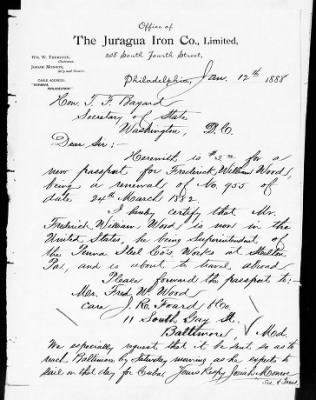 Office of
The Juragua Iron Co., Limited,
208 South Fourth Street,
Chairman.
Josiah Monroe,
Sec'y and Treas'r.
CABLE ADDRESS:
PHILADELPHIA."
Philadelphia, Jan. 12th 1888
Hon. T. F. Bayard
Secretary of State
Washington, D.C.
Dear Sir;-
Herewith is $ for a
new passport for Frederick William Wood,
being a renewal of No. 955 of
date 24th March 1882.
I hereby certify that Mr.
Frederick William Wood is now in the
United States, he being Superintendent of
the Penna Steel Co's. Works at Steelton
Pa., and is about to travel abroad
Please forward the passport to:
Mr. Fred W. Wood
care J. R. Foard & Co.
11 South Gay St.
Baltimore, Md.
We especially request that it be sent so as to
reach Baltimore by Saturday morning as he expects to
sail on that day for Cuba. Yours Respy Josiah Monroe
Sec. & Treas.